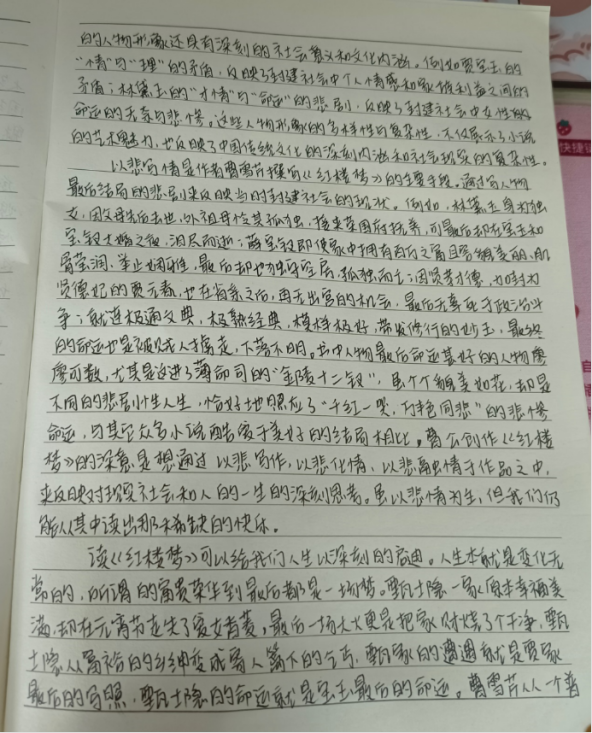 的人物形象还具有深刻的社会意义和文化内涵。例如贾宝玉的
“情”与“理”的矛盾,反映了封建社会中个人情感和家族利益之间的
矛盾;林黛玉的“才情”与“命运”的悲剧,反映了封建社会中女性的
命运的无奈与悲惨。这些人物形象的多样性与复杂性,不仅展示了小说
的艺术魅力,也反映了中国传统文化的深刻内涵和社会现实的复杂性。
以悲写情是作者曹雪芹撰写《红楼梦》的主要手段。通过写人物
最后结局的悲剧来反映当时封建社会的现状。例如,林黛玉身为独
女,因父母先后去世,外祖母怜其孤独,接来荣国府抚养,可最后却在宝玉和
宝钗大婚之夜,泪尽而逝;薛宝钗即使家中拥有百万之富且容貌美丽、肌
骨莹润、举止娴雅,最后却也独守空房,孤独而亡;因贤孝才德,加封为
贤德妃的贾元春,也在省亲之后,再无出宫的机会,最后无辜死于政治斗
争;就连极通文典,极熟经典,模样极好,带发修行的妙玉,最终
的命运也是被贼人掳走,下落不明。书中人物最后命运甚好的人物寥
寥可数,尤其是这进了薄命司的“金陵十二钗”,虽个个貌美如花,却是
不同的悲剧性人生,恰好地照应了“千红一哭,万艳同悲”的悲惨
命运,与其它众多小说酷爱于美好的结局相比。曹公创作《红楼
梦》的深意是想通过以悲写作,以悲化情、以悲融情于作品之中,
来反映对现实社会和人的一生的深刻思考。虽以悲情为主,但我们仍
能从其中读出那稀缺的快乐。
读《红楼梦》可以给我们人生以深刻的启迪。人生本就是变化无
常的,所谓的富贵荣华到最后都是一场梦。甄士隐一家原本幸福美
满,却在元宵节走失了爱女香菱,最后一场大火更是把家财烧了个干净,甄
士隐从富裕的乡绅变成寄人篱下的乞丐,甄家的遭遇就是贾家
最后的写照,甄士隐的命运就是宝玉最后的命运。曹雪芹从一个普